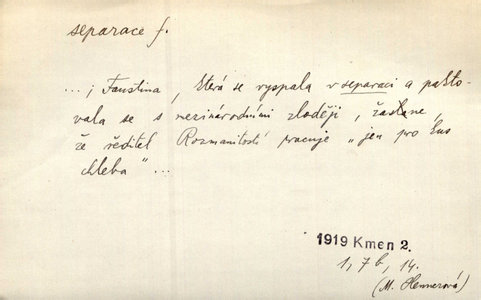 separace f.
... ; Faustina, která se vyspala v separaci a pakto-
vala se s mezinárodními zloději, žasne,
že ředitel Rozmanitostí pracuje „jen pro kus
chleba" ...
1919 Kmen 2.
1, 7b, 14.
(M. Hennerová)